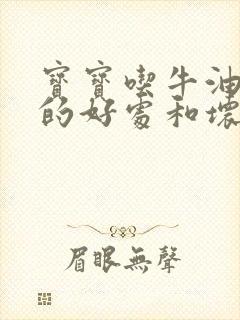 寶寶喫牛油
的好處和壞
眉眼無聲